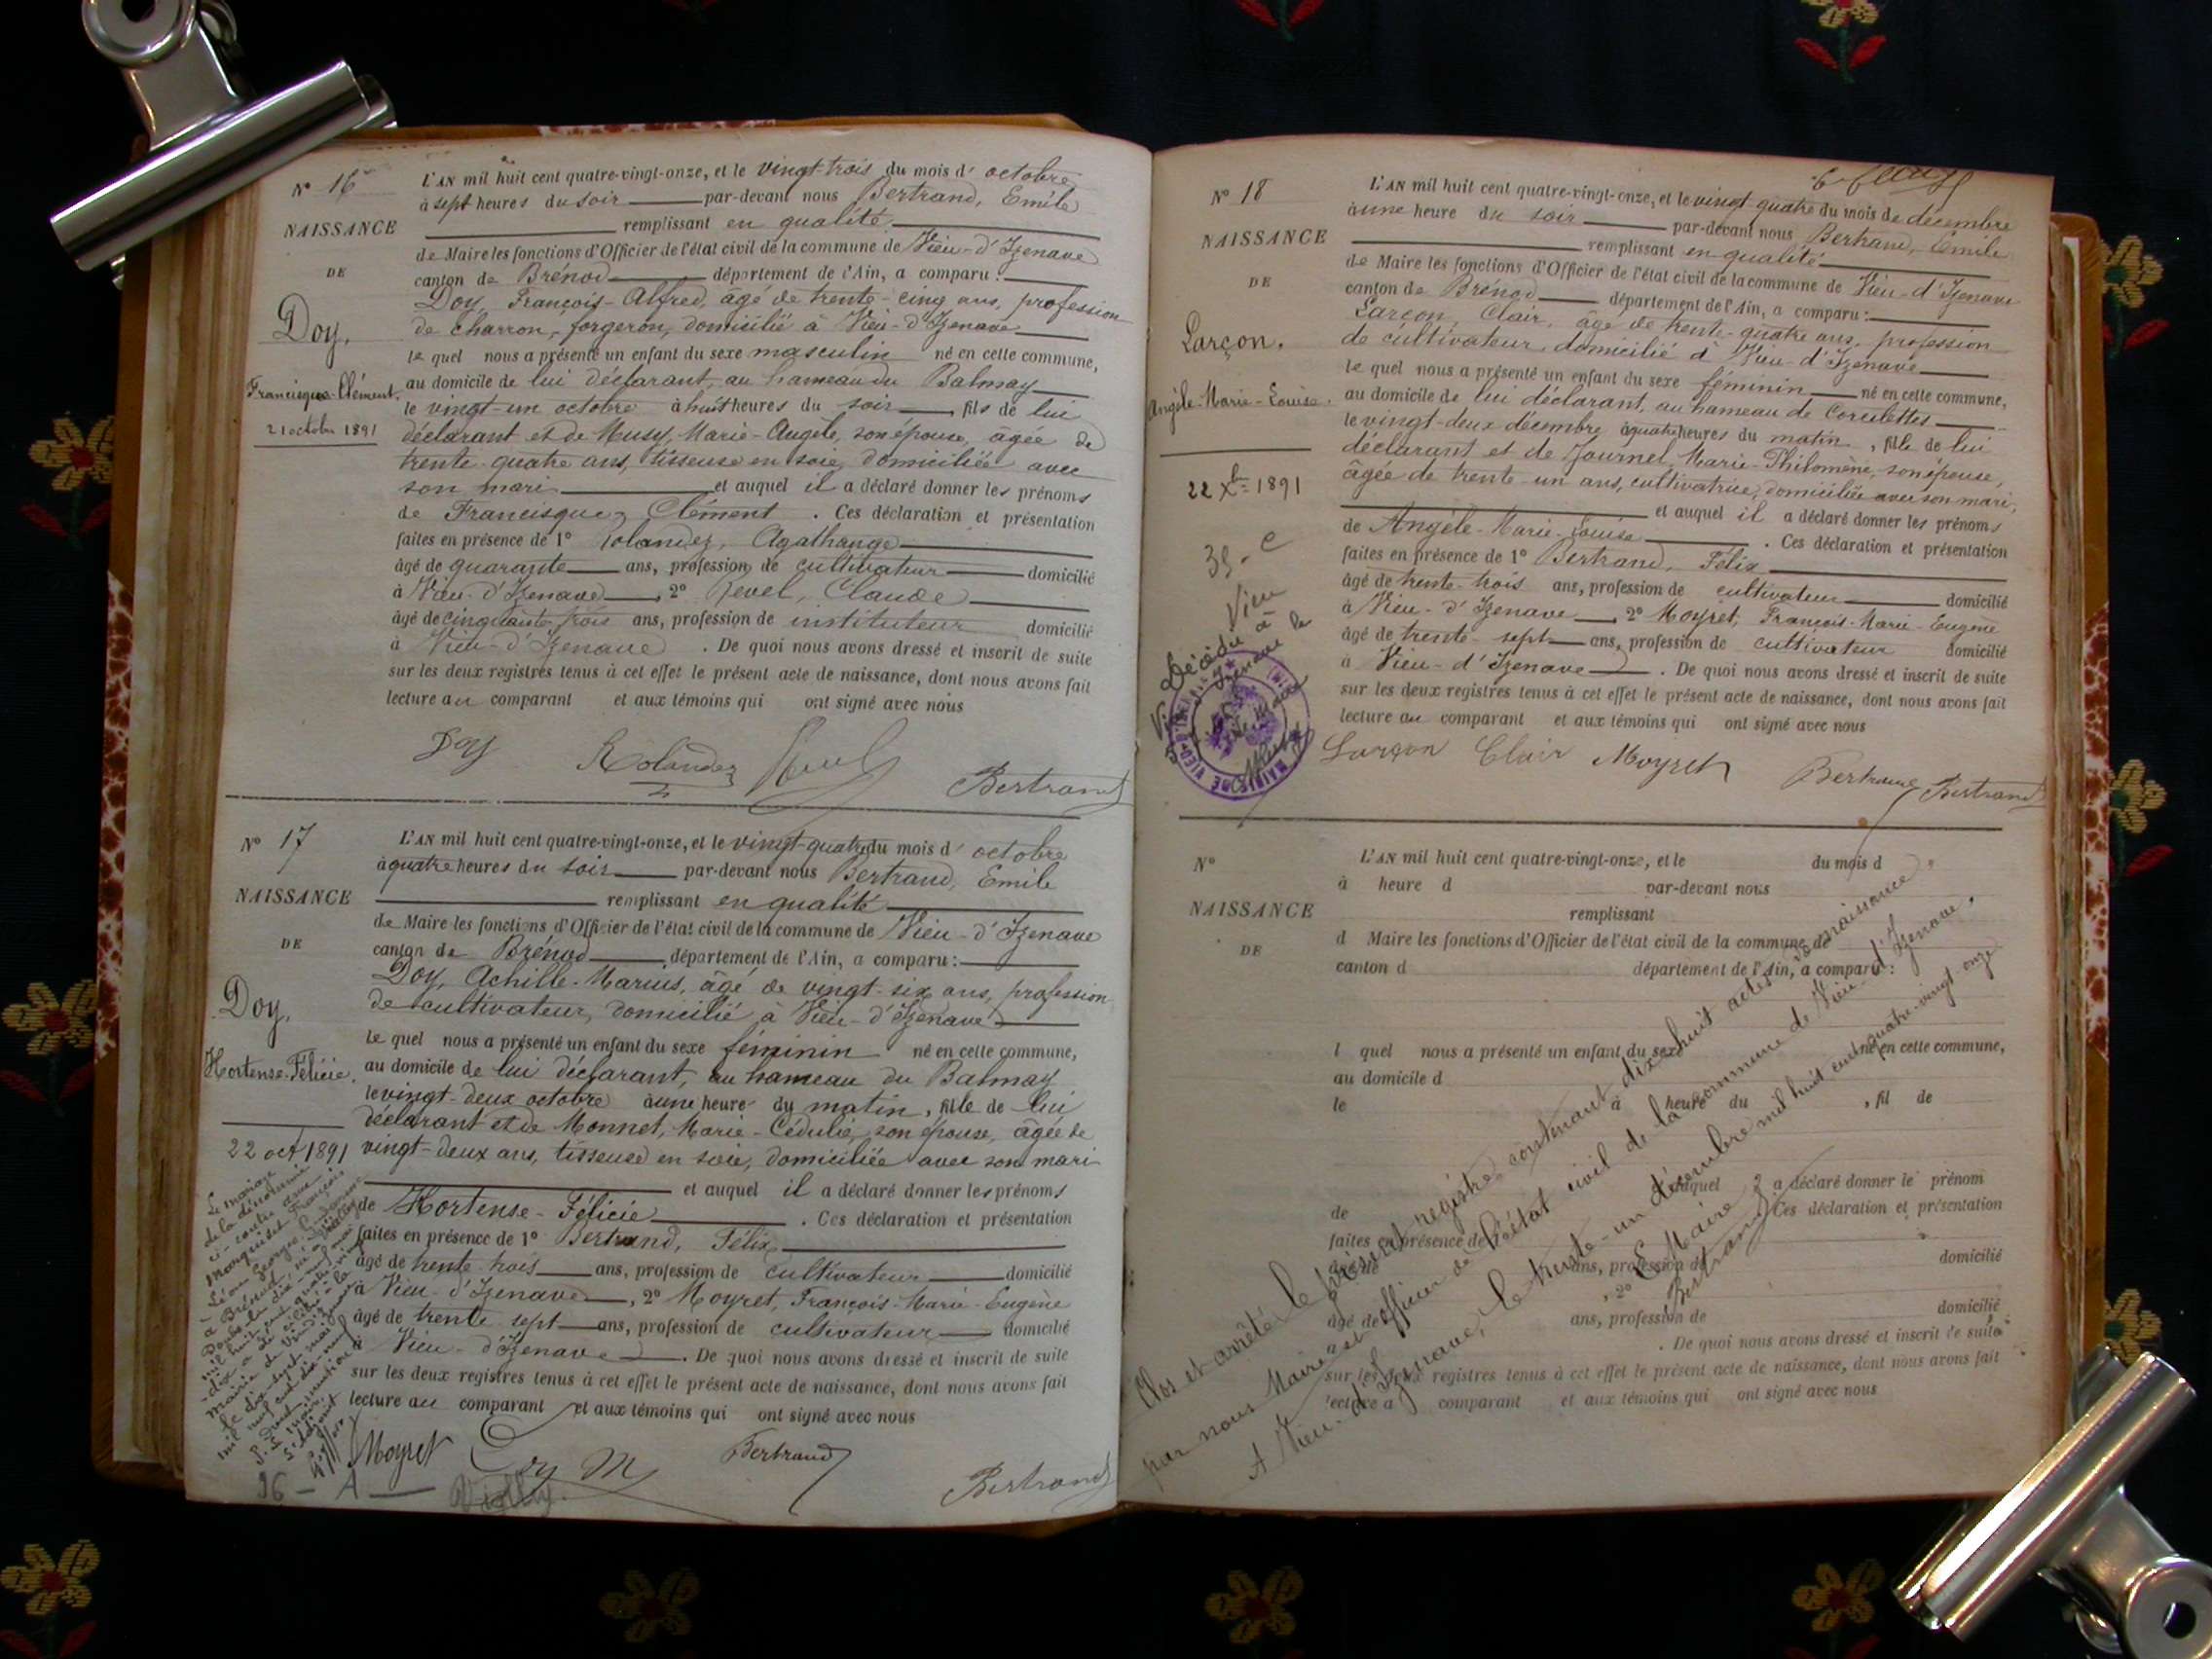 N° 16
NAISSANCE
DE
Doy,
Francisque-Clément.
21 octobre 1891
L'AN mil huit cent quatre-vingt-onze, et le vingt-trois du mois d'octobre
à sept heures du soir par-devant nous Bertrand, Emile
remplissant en qualité
de Maire les fonctions d'Officier de l'état civil de la commune de Vieu-d'Izenave
canton de Brénod département de l'Ain, a comparu :
Doy, François-Alfred, âgé de trente-cinq ans, profession
de charron, forgeron, domicilié à Vieu-d'Izenave
le quel nous a présenté un enfant du sexe masculin né en cette commune,
au domicile de lui déclarant, au hameau du Balmay
le vingt-un octobre à huit heures du soir, fils de lui
déclarant et de Musy, Marie-Angèle, son épouse, âgée de
trente-quatre ans, tisseuse en soie, domiciliée avec
son mari et auquel il a déclaré donner les prénoms
de Francisque, Clément. Ces déclaration et présentation
faites en présence de 1° Rolandez, Agathange
âgé de quarante ans, profession de cultivateur domicilié
à Vieu-d'Izenave, 2° Revel, Claude
âgé de cinquante trois ans, profession de instituteur domicilié
à Vieu-d'Izenave. De quoi nous avons dressé et inscrit de suite
sur les deux registres tenus à cet effet le présent acte de naissance, dont nous avons fait
lecture au comparant et aux témoins qui ont signé avec nous
Doy Rolandez Revel Bertrand
N° 17
NAISSANCE
DE
Doy,
Hortense-Félicie.
22 oct 1891
L'AN mil huit cent quatre-vingt-onze, et le vingt-quatre du mois d'octobre
à quatre heures du soir par-devant nous Bertrand, Emile
remplissant en qualité
de Maire les fonctions d'Officier de l'état civil de la commune de Vieu-d'Izenave
canton de Brénod département de l'Ain, a comparu :
Doy, Achille-Marius, âgé de vingt-six ans, profession
de cultivateur, domicilié à Vieu-d'Izenave
le quel nous a présenté un enfant du sexe féminin né en cette commune,
au domicile de lui déclarant, au hameau du Balmay
le vingt-deux octobre à une heure du matin, fille de lui
déclarant et de Monnet, Marie-Cédulie, son épouse, âgée de
vingt-deux ans, tisseuse en soie, domiciliée avec son mari
et auquel il a déclaré donner les prénoms
de Hortense-Félicie. Ces déclaration et présentation
faites en présence de 1° Bertrand, Félix
âgé de trente-trois ans, profession de cultivateur domicilié
à Vieu-d'Izenave, 2° Moyret, François-Marie-Eugène
âgé de trente sept ans, profession de cultivateur domicilié
à Vieu-d'Izenave. De quoi nous avons dressé et inscrit de suite
sur les deux registres tenus à cet effet le présent acte de naissance, dont nous avons fait
lecture au comparant et aux témoins qui ont signé avec nous
Moyret Doy M Bertrand
Bertrand
Le mariage
de la dénommée
ci-contre avec
Marquiset François
Léon Georges
à
mil huit cent quatre-vingt
dix a été célébré à la
mairie de
le dix-sept mai
mil neuf cent dix-neuf
96 - A
N° 18
NAISSANCE
DE
Larçon.
Angèle-Marie-Louise.
22 Xbre 1891
35 - C
Décédée à Vieu
d'Izenave le
MAIRIE DE VIEU-D'IZENAVE
L'AN mil huit cent quatre-vingt-onze, et le vingt-quatre du mois de décembre
à une heure du soir par-devant nous Bertrand, Emile
remplissant en qualité
de Maire les fonctions d'Officier de l'état civil de la commune de Vieu-d'Izenave
canton de Brénod département de l'Ain, a comparu :
Larçon, Clair, âgé de trente-quatre ans, profession
de cultivateur, domicilié à Vieu-d'Izenave
le quel nous a présenté un enfant du sexe féminin né en cette commune,
au domicile de lui déclarant, au hameau de Corcelettes
le vingt-deux décembre à quatre heures du matin, fille de lui
déclarant et de Journet, Marie-Philomène, son épouse,
âgée de trente-un ans, cultivatrice, domiciliée avec son mari,
et auquel il a déclaré donner les prénoms
de Angèle-Marie-Louise. Ces déclaration et présentation
faites en présence de 1° Bertrand, Félix
âgé de trente-trois ans, profession de cultivateur domicilié
à Vieu-d'Izenave, 2° Moyret, François-Marie-Eugène
âgé de trente-sept ans, profession de cultivateur domicilié
à Vieu-d'Izenave. De quoi nous avons dressé et inscrit de suite
sur les deux registres tenus à cet effet le présent acte de naissance, dont nous avons fait
lecture au comparant et aux témoins qui ont signé avec nous
Larçon Clair Moyret Bertrand Bertrand
N°
NAISSANCE
DE
L'AN mil huit cent quatre-vingt-onze, et le du mois d
à heure d par-devant nous
remplissant
d Maire les fonctions d'Officier de l'état civil de la commune de
canton d département de l'Ain, a comparu :
l quel nous a présenté un enfant du sexe né en cette commune,
au domicile d
le à heure du , fil de
et auquel a déclaré donner le prénom
de Ces déclaration et présentation
faites en présence de 1°
âgé de ans, profession de domicilié
2°
âgé de ans, profession de domicilié
à . De quoi nous avons dressé et inscrit de suite
sur les deux registres tenus à cet effet le présent acte de naissance, dont nous avons fait
lecture a comparant et aux témoins qui ont signé avec nous
Clos et arrêté le présent registre contenant dix-huit actes de naissance
par nous Maire et officier de l'état civil de la commune de Vieu-d'Izenave.
A Vieu-d'Izenave, le trente-un décembre mil huit cent quatre-vingt-onze
Le Maire
Bertrand